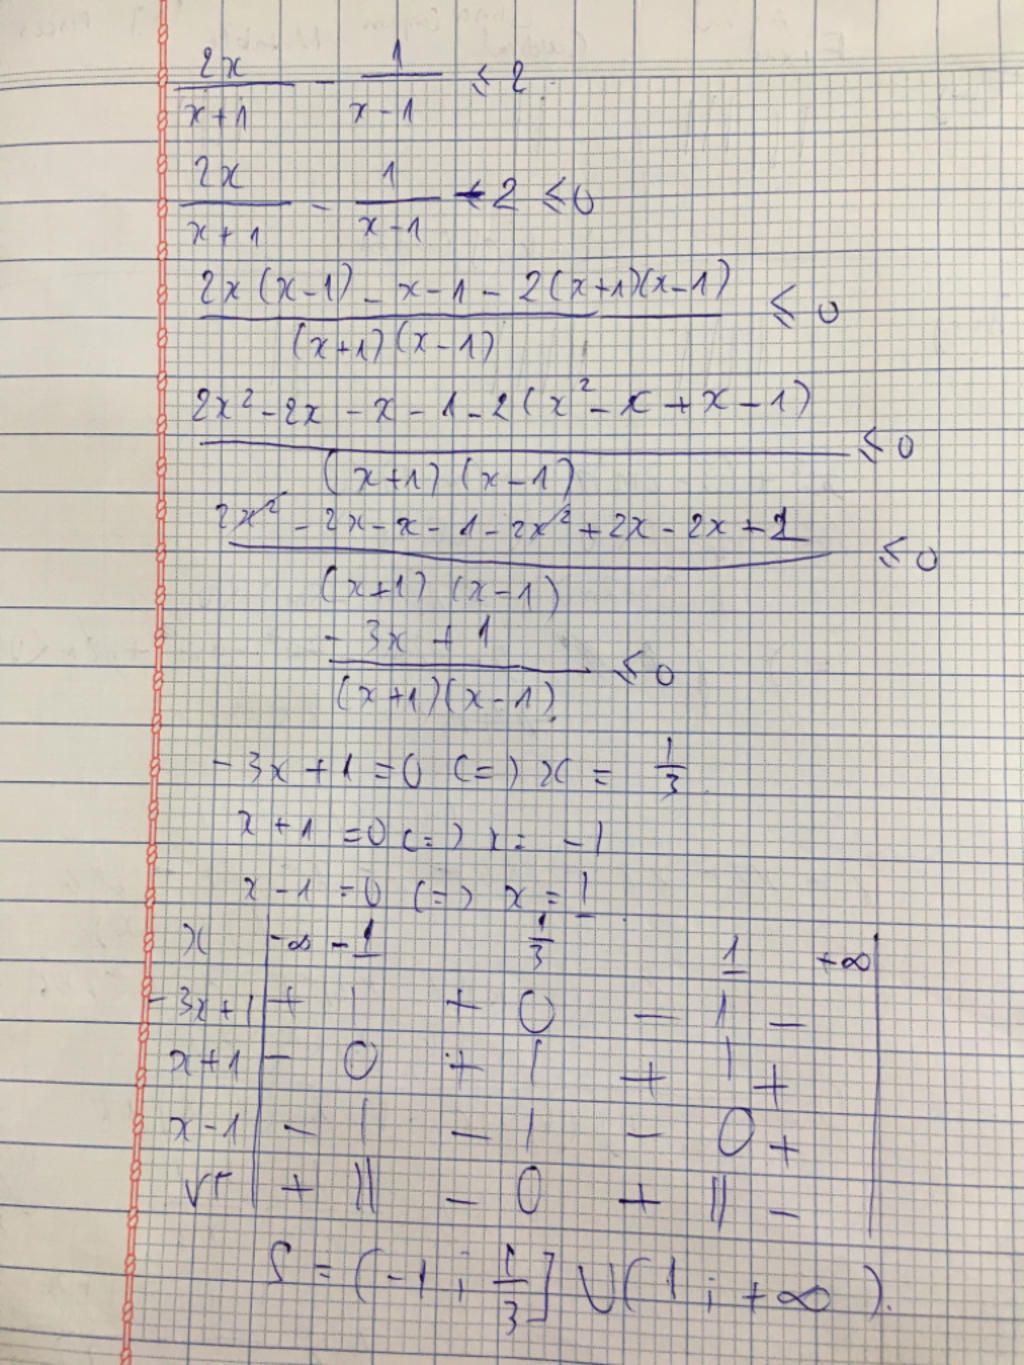 2x/(x+1) - 1/(x-1) ≤ 2
2x/(x+1) - 1/(x-1) - 2 ≤ 0
(2x(x-1) - x-1 - 2(x+1)(x-1))/((x+1)(x-1)) ≤ 0
(2x² - 2x - x - 1 - 2(x² - x + x - 1))/((x+1)(x-1)) ≤ 0
(2x² - 2x - x - 1 - 2x² + 2x - 2x + 2)/((x+1)(x-1)) ≤ 0
(-3x + 1)/((x+1)(x-1)) ≤ 0
-3x + 1 = 0 (=) x = 1/3
x + 1 = 0 (=) x = -1
x - 1 = 0 (=) x = 1
x | -∞ -1 1/3 1 +∞ |
-3x+1 | + | + 0 - | - |
x+1 | - 0 + | + | + |
x-1 | - | - | - 0 + |
VT | + || - 0 + || - |
S = (-1; 1/3] ∪ (1; +∞).